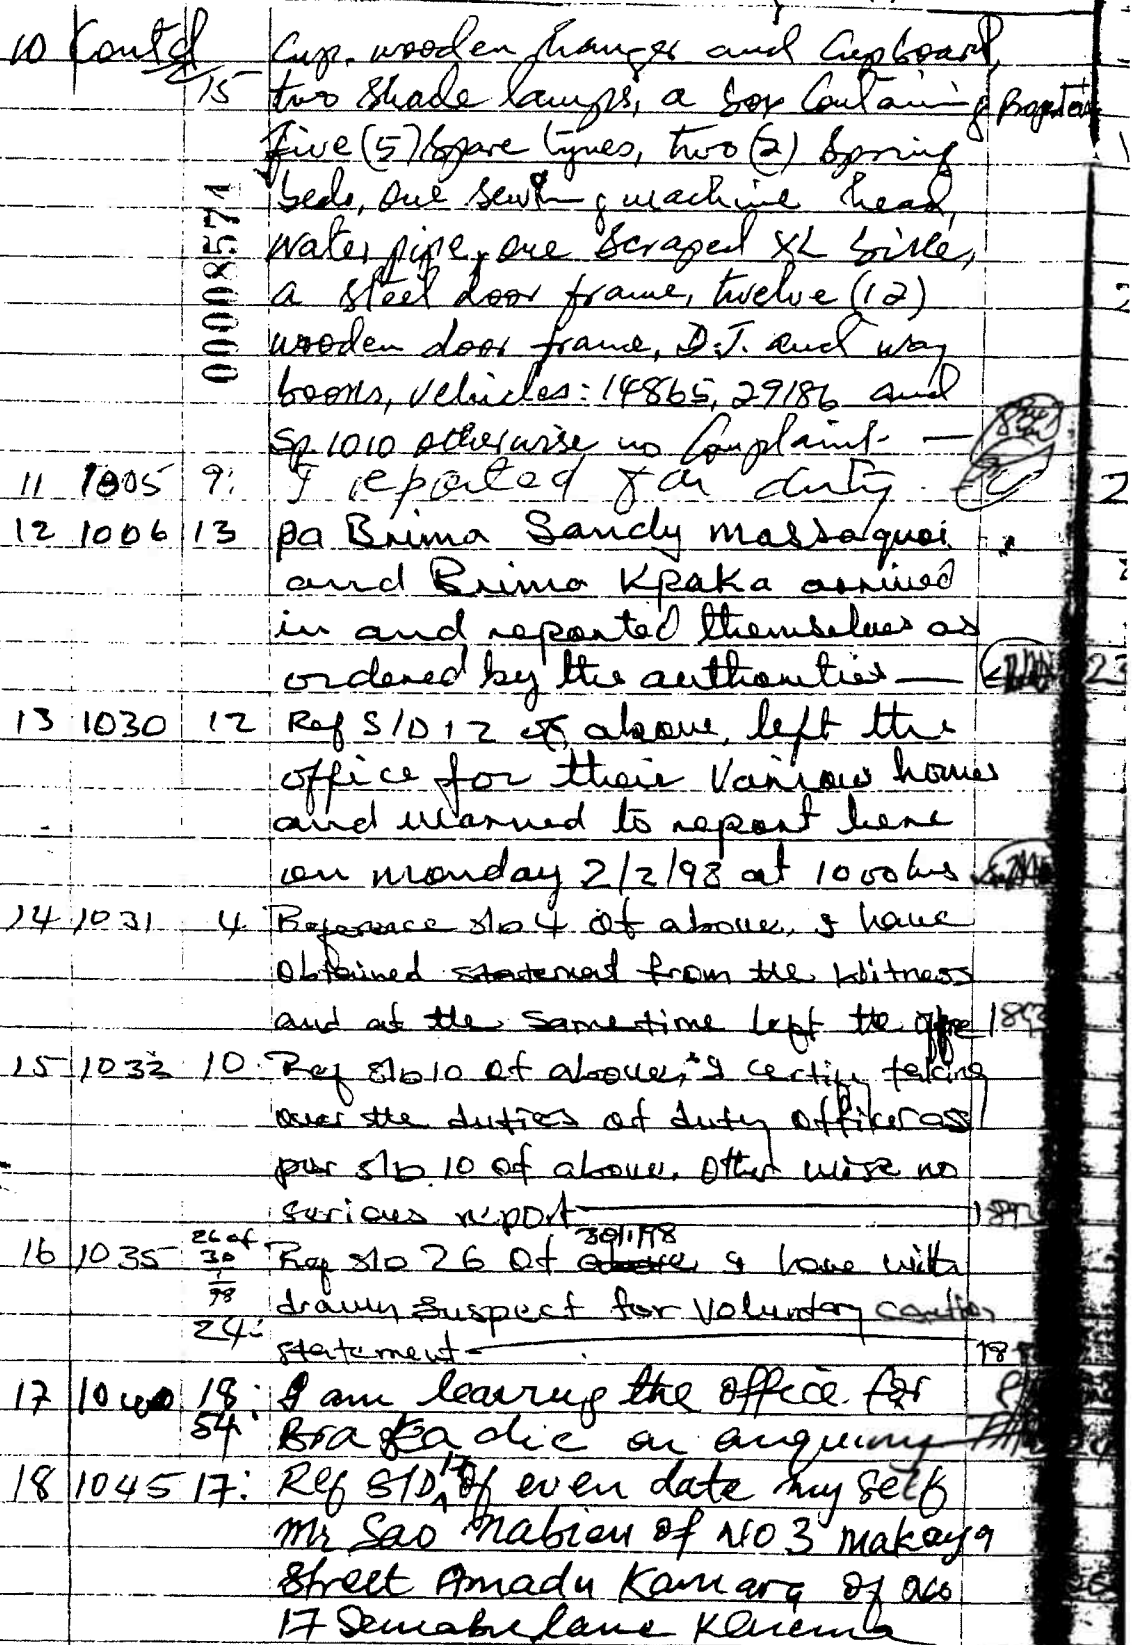 10 Contd Cup. wooden hanger and Cupboard,
15 two shade lamps, a box Containing
five (5) Spare tyres, two (2) Spring
beds, one sewing machine head,
00008571
water pipe, one Scraped XL bike,
a steel door frame, twelve (12)
wooden door frame, D.J. and way
books, vehicles: 14865, 29186 and
Sp. 1010 otherwise no Complaint. —
11 1005 9: I reported for duty.
12 1006 13 pa Brima Sandy Massaquoi
and Brima Kpaka arrived
in and reported themselves as
ordered by the authorities —
23
13 1030 12 Ref S/D 12 of above, left the
office for their Various homes
and warned to report here
on monday 2/2/98 at 1000hrs
14 1031 4 Reference s/o 4 of above, I have
obtained statement from the witness
and at the same time left the office
15 1033 10 Ref s/o 10 of above, I certify taking
over the duties of duty officer as
per s/o 10 of above. Other wise no
serious report
30/1/98
16 1035 26 of 30/1/98 Ref s/o 26 of above I have with
drawn suspect for voluntary caution
24: statement
17 1040 18: I am leaving the office for
54. on enquiry
18 1045 17: Ref S/D 17 of even date my self
Mr Sao Nabieu of NO 3 Makaya
Street Amadu Kamara of no
17 lane Kenema